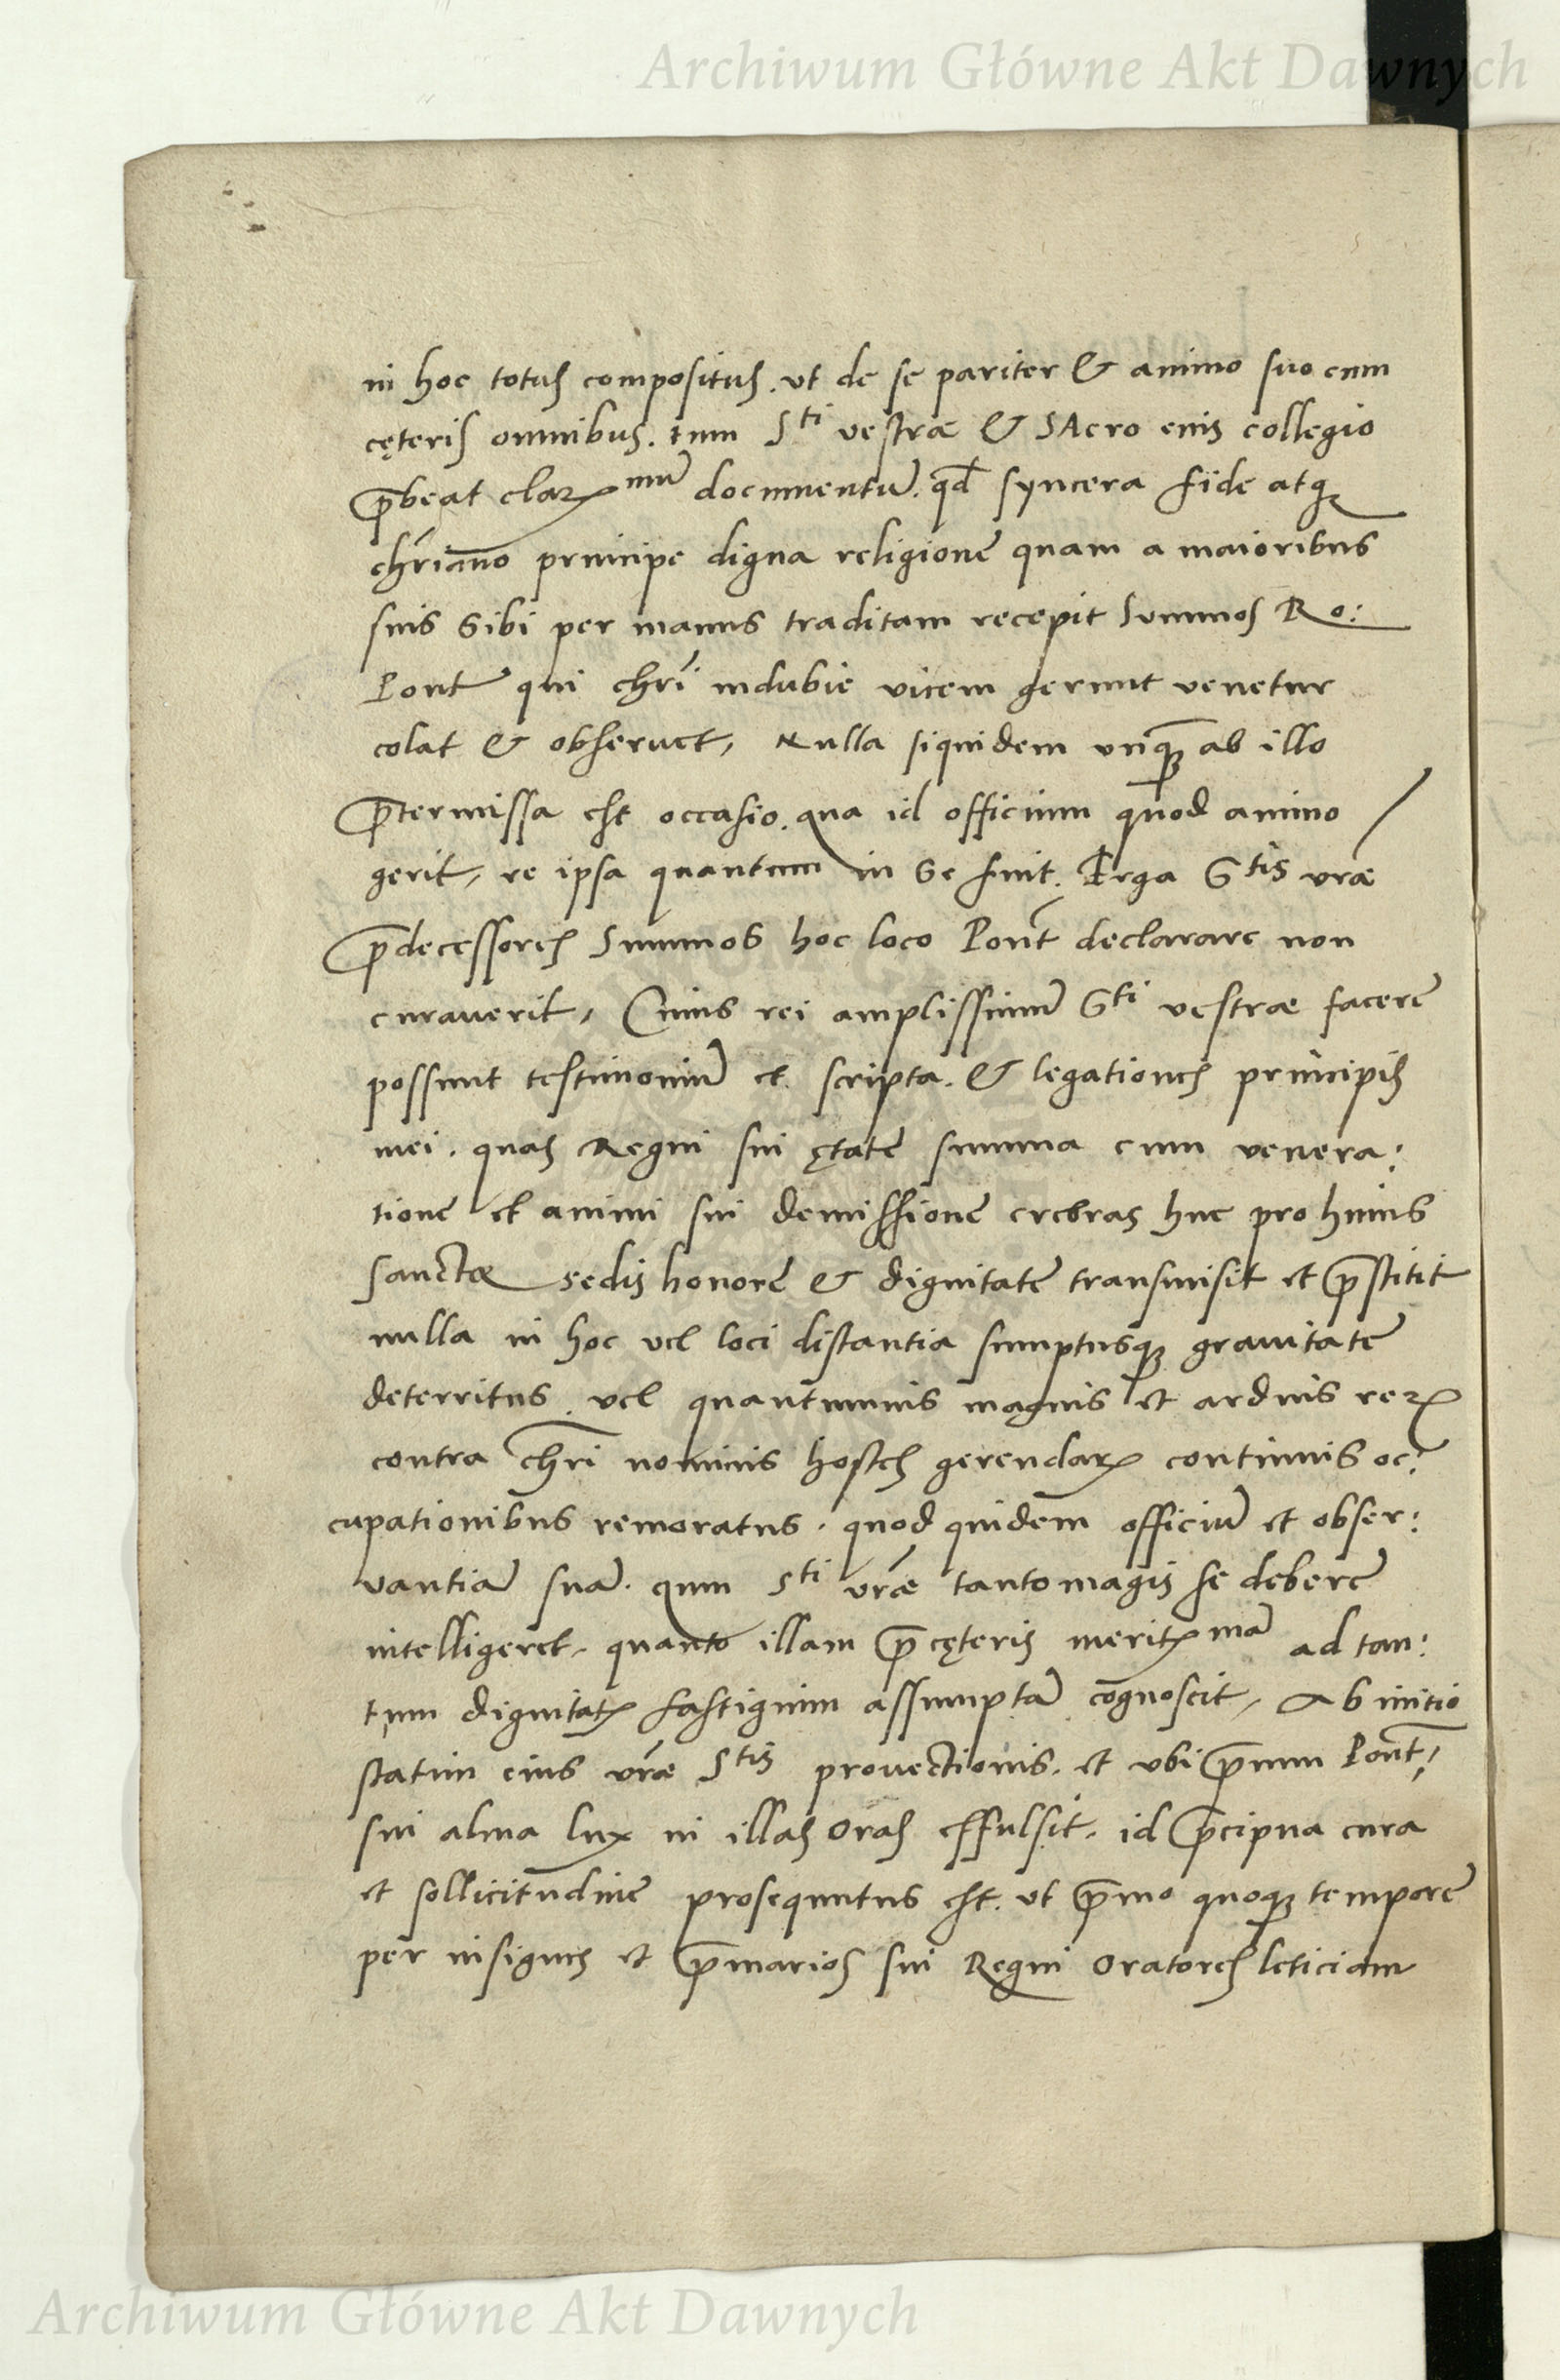 Archiwum Główne Akt Dawnych
in hoc totus compositus. ut de se pariter & animo suo cum
cęteris omnibus. tum S^ti vestræ & SAcro eius collegio
p̄beat clarꝝ^mū documentū. qđ syncera fide atqꝫ
chr̄iano principe digna religionē quam a maioribus
suis sibi per manus traditam recepit Summos Ro:
Pont qui chr̄i indubie vicem gerunt venetur
colat & obseruet, Nulla siquidem unq̄ꝫ ab illo
p̄termissa est occasio. qua id officium quod animo /
gerit, re ipsa quantum in se fuit. Erga S^tis vrǣ
p̄decessores Summos hoc loco Pont̄ declarare non
curauerit, Cuius rei amplissimū S^ti vestræ facerē
possunt testimoniū et. scripta. & legationes principis
mei. quas Regni sui ętatē summa cum venera:
tionē et animi sui demissionē crebras huc pro huius
sanctæ sedis honorē & dignitatē transmisit et p̄stitit
nulla in hoc vel loci distantia sumptusqꝫ grauitatē
deterritus. vel quantumuis magnis et arduis reꝝ
contra chr̄i nominis hostes gerendaꝝ continuis oc:
cupationibus remoratus. quod quidem officiū et obser:
vantiā suā. qum S^ti vrǣ tanto magis se deberē
intelligeret. quanto illam p̄ cęteris meritꝭ^mā ad tan:
tum dignitatꝭ fastigium assumptā cognoscit, Ab initio
statim eius vrǣ S^tis prouectionis. et ubi p̄mum Pont̄:
sui alma lux in illas oras effulsit. id p̄cipua cura
et sollicitudinē prosequutus est. ut p̄mo quoqꝫ temporē
per insignes et p̄marios sui Regni Oratores leticiam
Archiwum Główne Akt Dawnych